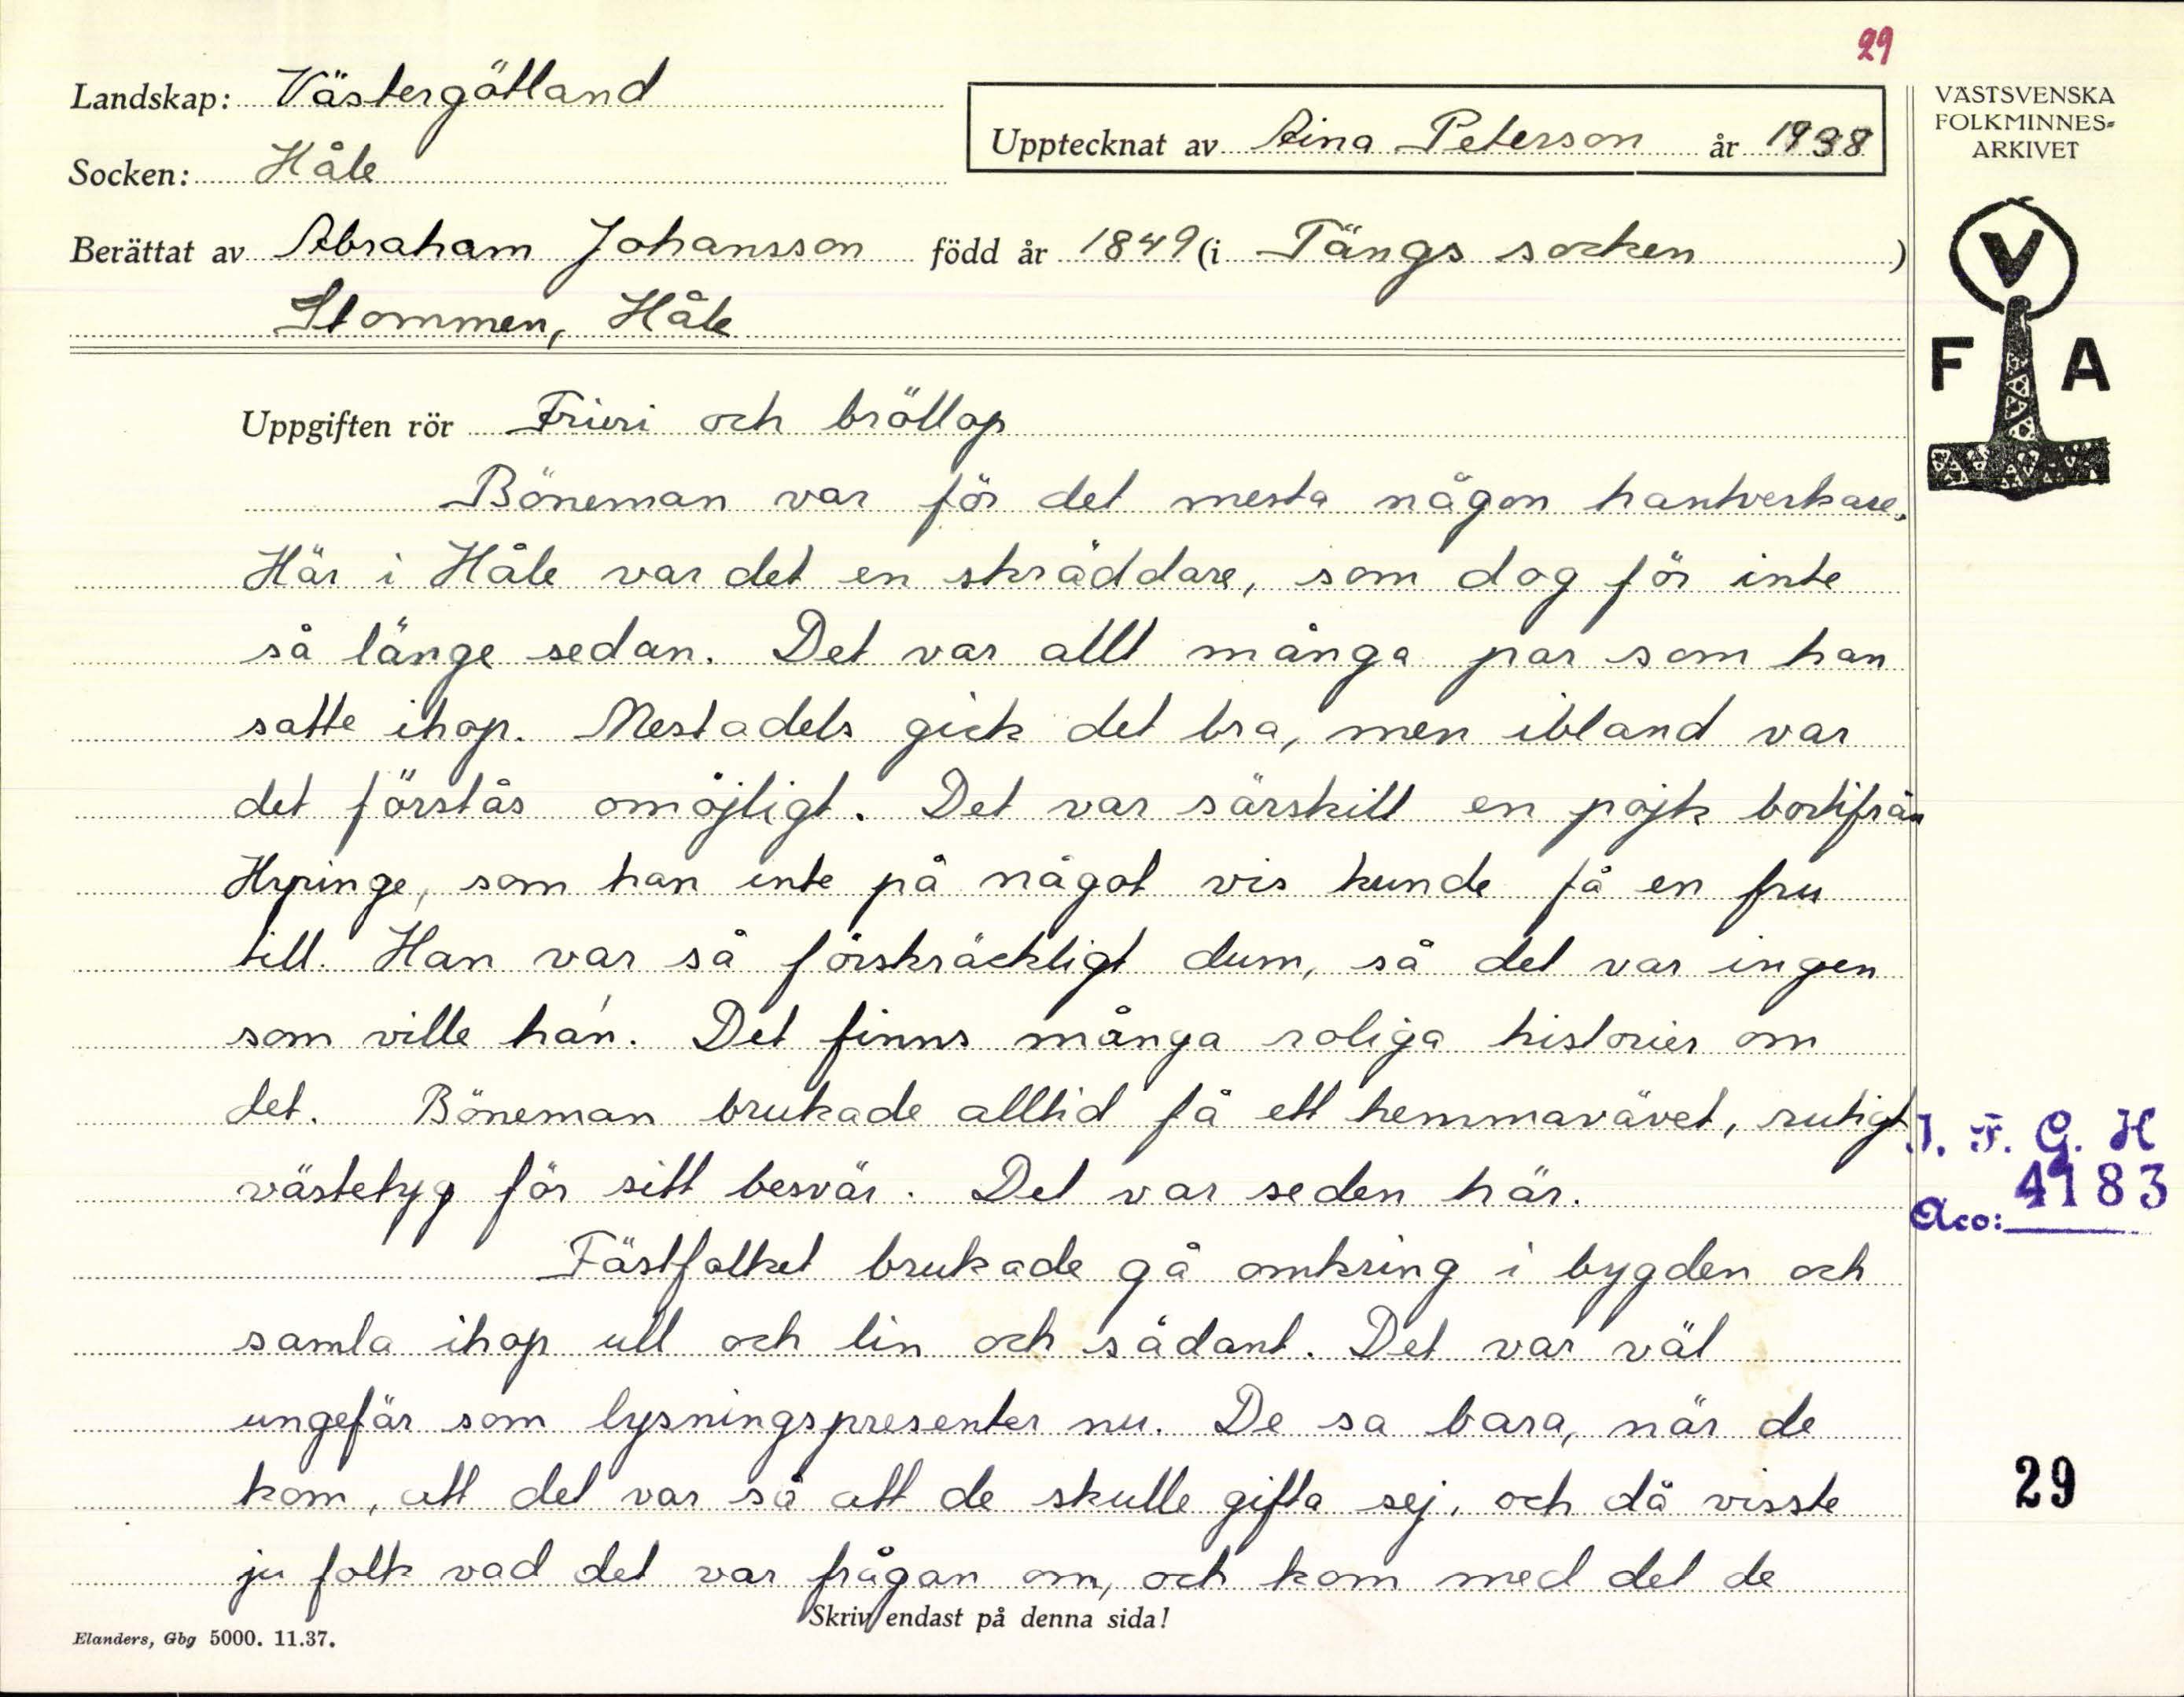 29
Landskap: Västergötland
VÄSTSVENSKA
FOLKMINNES=
ARKIVET
Upptecknat av Aina Peterson år 1938
Socken: Håle
Berättat av Abraham Johansson född år 1849 (i Tängs socken)
Stommen, Håle
V
F A
Uppgiften rör Frieri och bröllop
Böneman var för det mesta någon hantverkare.
Här i Håle var det en skräddare, som dog för inte
så länge sedan. Det var allt många par som han
satte ihop. Mestadels gick det bra, men ibland var
det förstås omöjligt. Det var särskilt en pojk bortifrån
Hyringe, som han inte på något vis kunde få en fru
till. Han var så förskräckligt dum, så det var ingen
som ville ha'n. Det finns många roliga historier om
det. Böneman brukade alltid få ett hemmavävet, rutigt
västetyg för sitt besvär. Det var seden här.
I. F. G. H
Acc: 4183
Fästfolket brukade gå omkring i bygden och
samla ihop ull och lin och sådant. Det var väl
ungefär som lysningspresenter nu. De sa bara, när de
kom, att det var så att de skulle gifta sej, och då visste
29
ju folk vad det var frågan om, och kom med det de
Skriv endast på denna sida!
Elanders, Gbg 5000. 11.37.